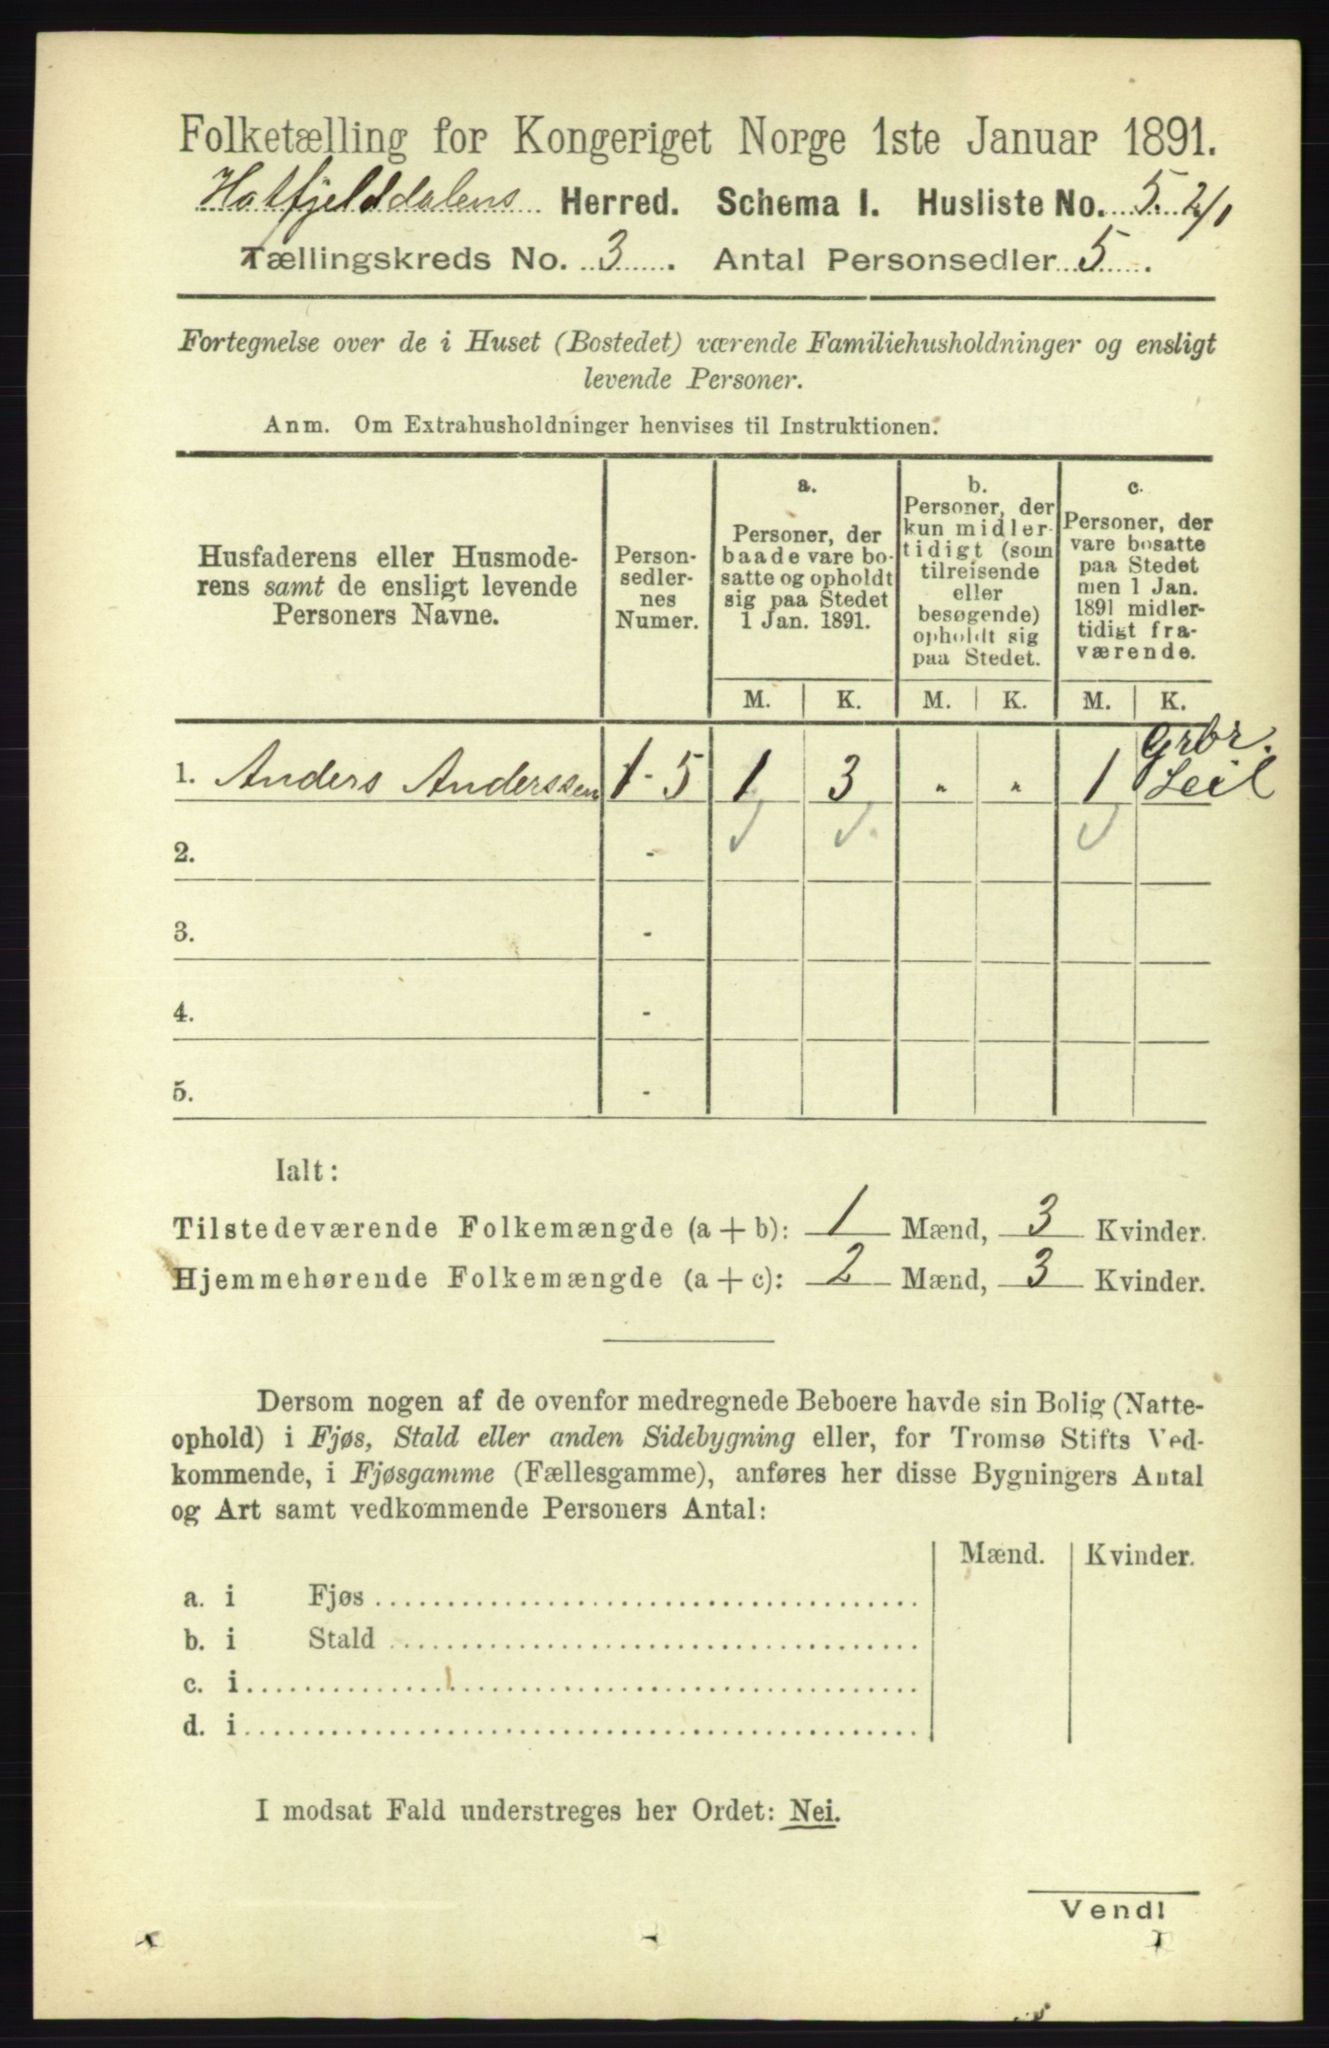 Folketælling for Kongeriget Norge 1ste Januar 1891.
Hatfjelddalens Herred. Schema I. Husliste No. 5. 2/1
Tællingskreds No. 3. Antal Personsedler 5.
Fortegnelse over de i Huset (Bostedet) værende Familiehusholdninger og ensligt
levende Personer.
Anm. Om Extrahusholdninger henvises til Instruktionen.
Husfaderens eller Husmode-
rens samt de ensligt levende
Personers Navne.
Person-
sedler-
nes
Numer.
a.
Personer, der
baade vare bo-
satte og opholdt
sig paa Stedet
1 Jan. 1891.
b.
Personer, der
kun midler-
tidigt (som
tilreisende
eller
besøgende)
opholdt sig
paa Stedet.
c.
Personer, der
vare bosatte
paa Stedet
men 1 Jan.
1891 midler-
tidigt fra-
værende.
M. K. M. K. M. K.
Grbr.
1. Anders Anderssen 1-5 1 3 " " 1 Leil
2. -
3. -
4. -
5. -
Ialt:
Tilstedeværende Folkemængde (a + b): 1 Mænd, 3 Kvinder.
Hjemmehørende Folkemængde (a + c): 2 Mænd, 3 Kvinder.
Dersom nogen af de ovenfor medregnede Beboere havde sin Bolig (Natte-
ophold) i Fjøs, Stald eller anden Sidebygning eller, for Tromsø Stifts Ved-
kommende, i Fjøsgamme (Fællesgamme), anføres her disse Bygningers Antal
og Art samt vedkommende Personers Antal:
Mænd. Kvinder.
a. i Fjøs
b. i Stald
c. i
d. i
I modsat Fald understreges her Ordet: Nei.
Vend!